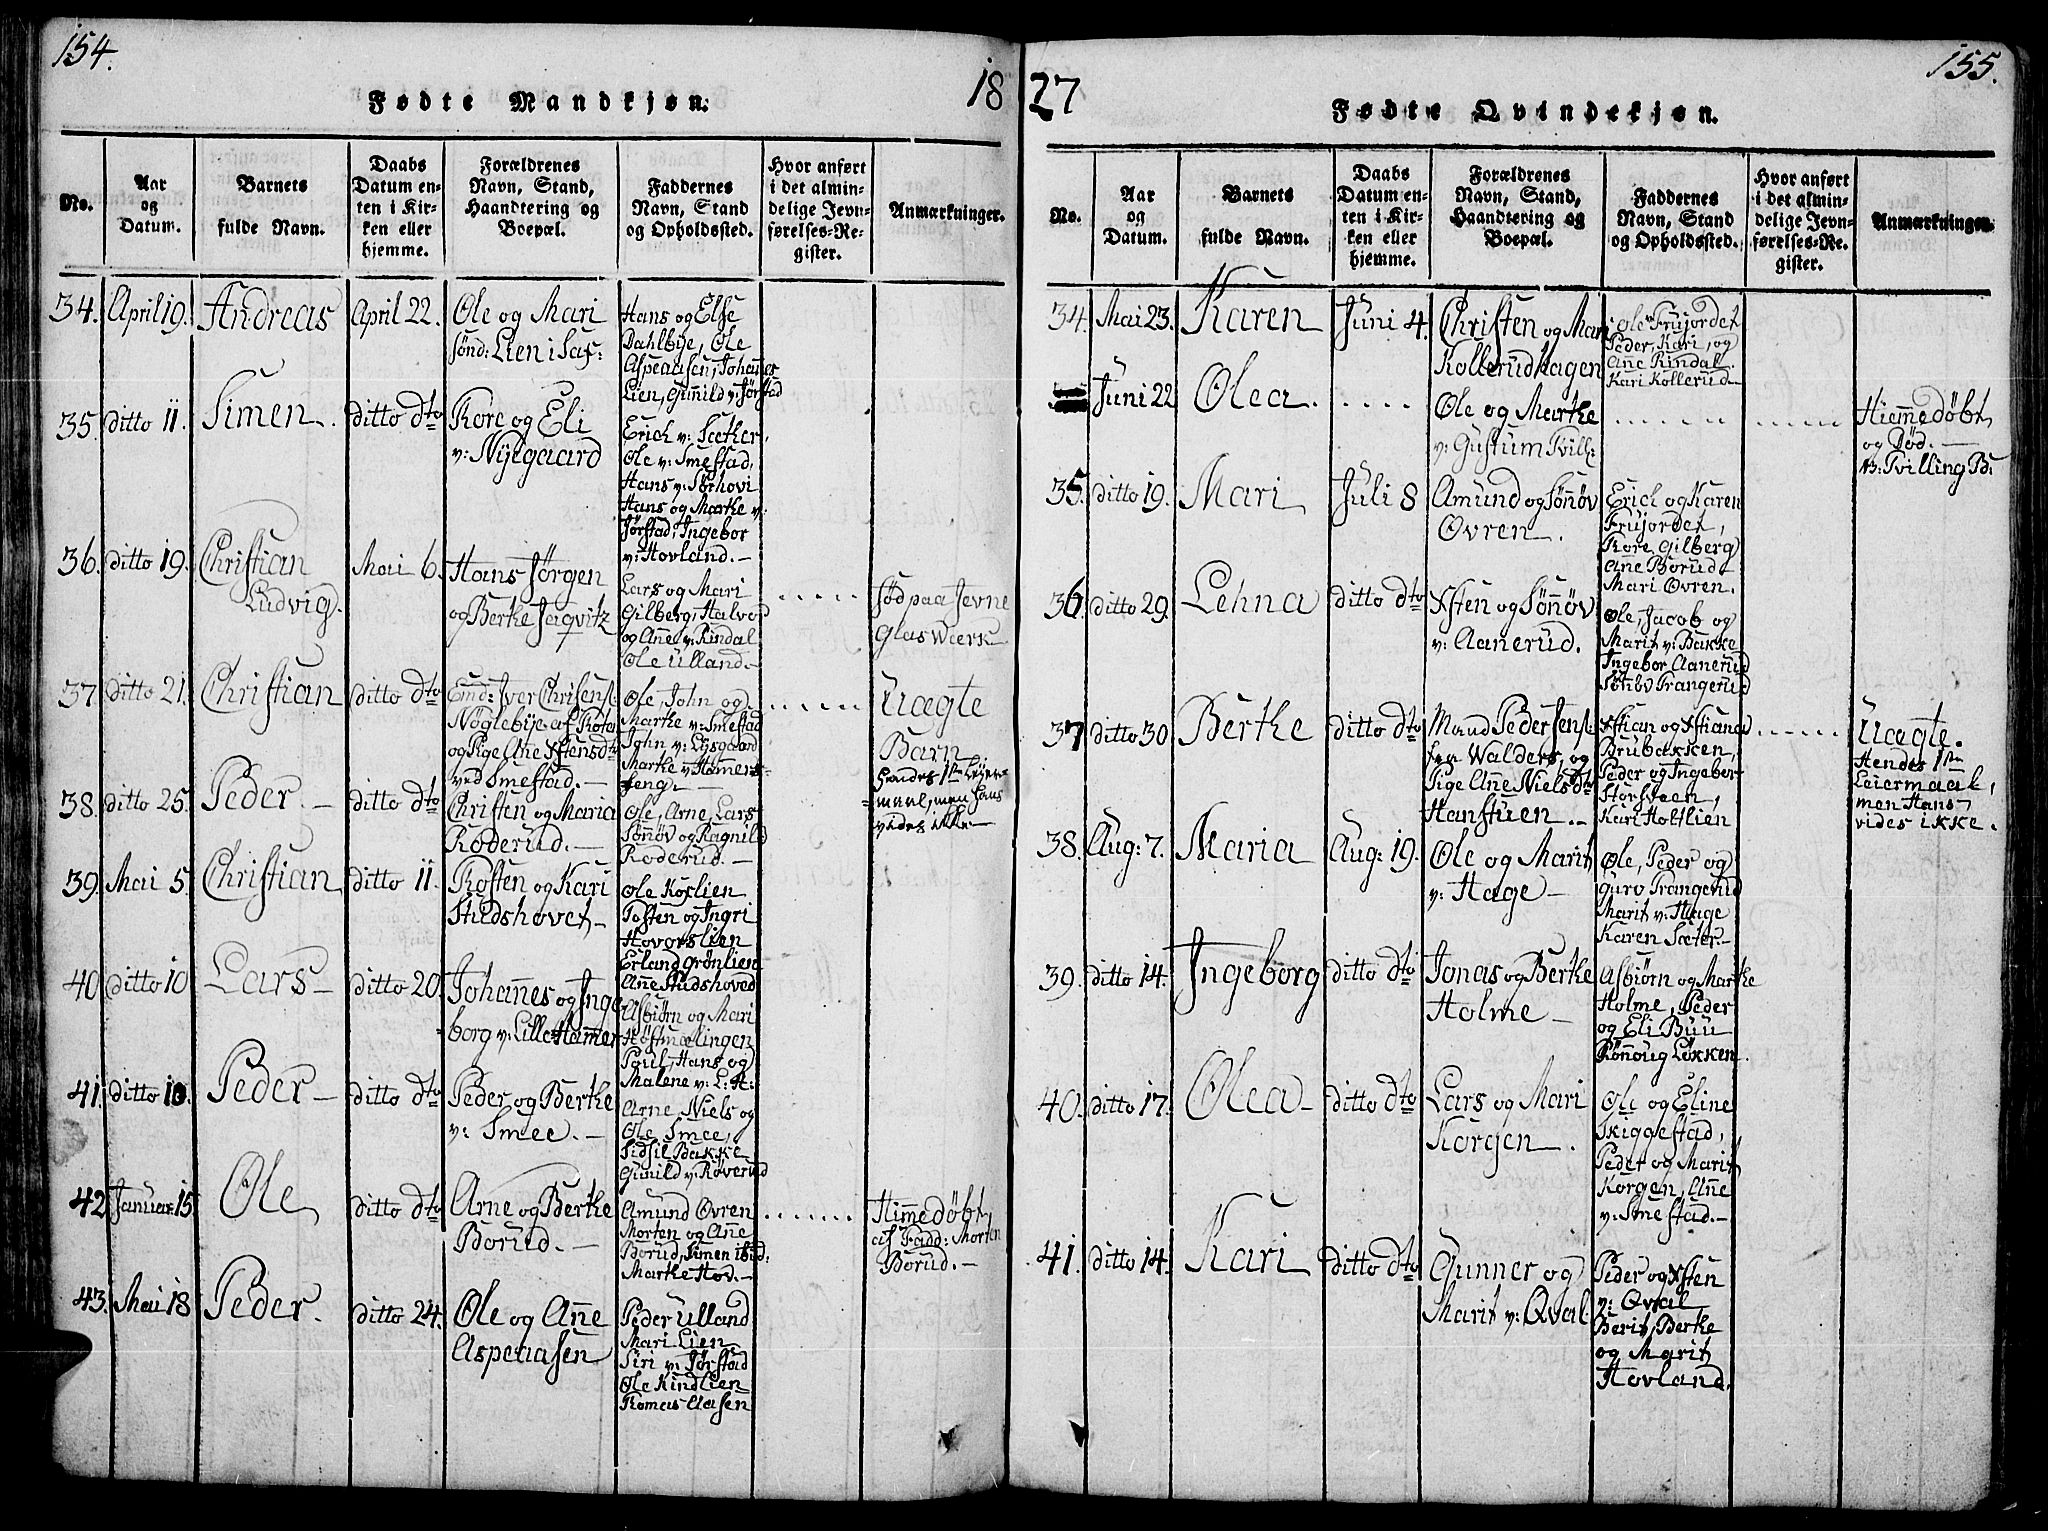 154.
18
Fødte Mandkjøn.
No.
Aar
og
Datum.
Barnets
fulde Navn.
Daabs
Datum en-
ten i Kir-
ken eller
hjemme.
Forældrenes
Navn, Stand,
Haandtering og
Boepæl.
Faddernes
Navn, Stand
og Opholdssted.
Hvor anført
i det almin-
delige Jevn-
førelses-Re-
gister.
Anmærkninger.
34. April 19. Andreas April 22.
Ole og Mari
sønd: Lien i Saf:
Hans og Else
Dahlbye, Ole
Aspeaasen, Johannes
Lien, Gunild v: Jørstad
35. ditto 11. Simen. ditto dto
Tore og Eli
v: Nylgaard
Erich v: Sæther,
Ole v: Smestad,
Hans v: Sørhovi
Hans og Marthe v:
Jørstad, Ingebor
v: Hovland.
36. ditto 19. Christian
Ludvig.
Mai 6.
Hans Jørgen
og Berthe
Lars og Mari
Gilberg, Halvor
og Anne v: Rindal
Ole Ulland.
. . . . .
fød paa Jevne
Glas Wærk
37. ditto 21. Christian ditto dto
Iver Christens:
Nøglebye af
og Pige Ane Xstensdtr
ved Smestad.
Ole, John og
Marthe v: Smestad
John v: Lysgaard
Marthe v: Hamers-
feng.
. . . . .
Uægte
Barn
Hendes 1ste Leyer-
maal, men Hans
vides ikke.
38. ditto 25. Peder. ditto dto
Christen og Maria
Roderud.
Ole, Arne, Lars
Sønnøv og Ragnild
Roderud.
39. Mai 5. Christian ditto 11.
Tosten og Kari
Studshovet
Ole Koxlien
Tosten og Ingri
Hovorslien
Erland Grønlien
Anne Studshoved
40. ditto 10 Lars ditto 20.
Johannes og Inge
borg v: Lille Hamer
Asbiørn og Mari
Høstmælingen
Poul, Hans og
Malene v: L: H:
41. ditto 10. Peder ditto dto
Peder og Berthe
v: Smee.
Arne, Niels og
Ole Smee,
Sidsil Bakke
Gunild v: Røverud
42. Januar 15 Ole ditto dto
Arne og Berthe
Borud.
Amund Øvren
Morten og Anne
Borud, Simen ibid:
Marthe Hov.
. . . . .
Himmedøbt
af Fadd: Morten
Borud.
43. Mai 18 Peder. ditto 24.
Ole og Anne
Aspeaasen
Peder Ulland
Mari Lien
Siri v: Jørstad
Ole Kindlien
Tomas Aasen
27
155.
Fødte Qvindekjøn.
No.
Aar
og
Datum.
Barnets
fulde Navn.
Daabs
Datum en-
ten i Kir-
ken eller
hjemme.
Forældrenes
Navn, Stand,
Haandtering og
Boepæl.
Faddernes
Navn, Stand
og Opholdssted.
Hvor anført
i det almin-
delige Jevn-
førelses-Re-
gister.
Anmærkninger.
34. Mai 23. Karen Juni 4.
Christen og Mari
Kollerudhagen
Ole Frujordet
Peder, Kari, og
Anne Rindal.
Kari Kollerud
Juni 22 Olea. . . . .
Ole og Marthe
v: Gustum Tvill:
. . . . . . . . . .
Hiemmedøbt
og Død.
N: Tvilling B:
35. ditto 19. Mari Juli 8
Amund og Sønnøv
Øvren.
Erich og Karen
Frujordet,
Tore Gilberg
Ane Borud
Mari Øvren.
36. ditto 29. Lehna ditto dto
Xsten og Sønnøv
v: Aanerud.
Ole, Jacob og
Marit v: Bakke
Ingebor Aanerud
Sønnøv Trangerud
37 ditto 30 Berthe ditto dto
Mand Peder Jens:
fra Walders, og
Pige Anne Nielsdtr
Hanstuen.
Xstian og Xstiane
Brubakken,
Peder og Ingebor
Storsveen,
Kari Holtlien
. . . . .
Uægte.
Hendes 1ste
Leiermaal,
men Hans
vides ikke.
38. Aug: 7. Maria Aug: 19.
Ole og Marit
v: Hage
Ole, Peder og
Guro Trangerud
Marit v: Hage
Karen Sæter
39. ditto 14. Ingeborg ditto dto
Jonas og Berthe
Holme
Asbiørn og Marthe
Holme, Peder
og Eli Buu
Rønnoug Løkken.
40. ditto 17. Olea ditto dto
Lars og Mari
Korgen.
Ole og Eline
Skiggestad,
Peder og Marit
Korgen, Anne
v: Smestad.
41. ditto 14. Kari ditto dto
Gunner og
Marit v: Qval
Peder og Xsten
v: Qval
Berit, Berthe
og Marit
Hovland.